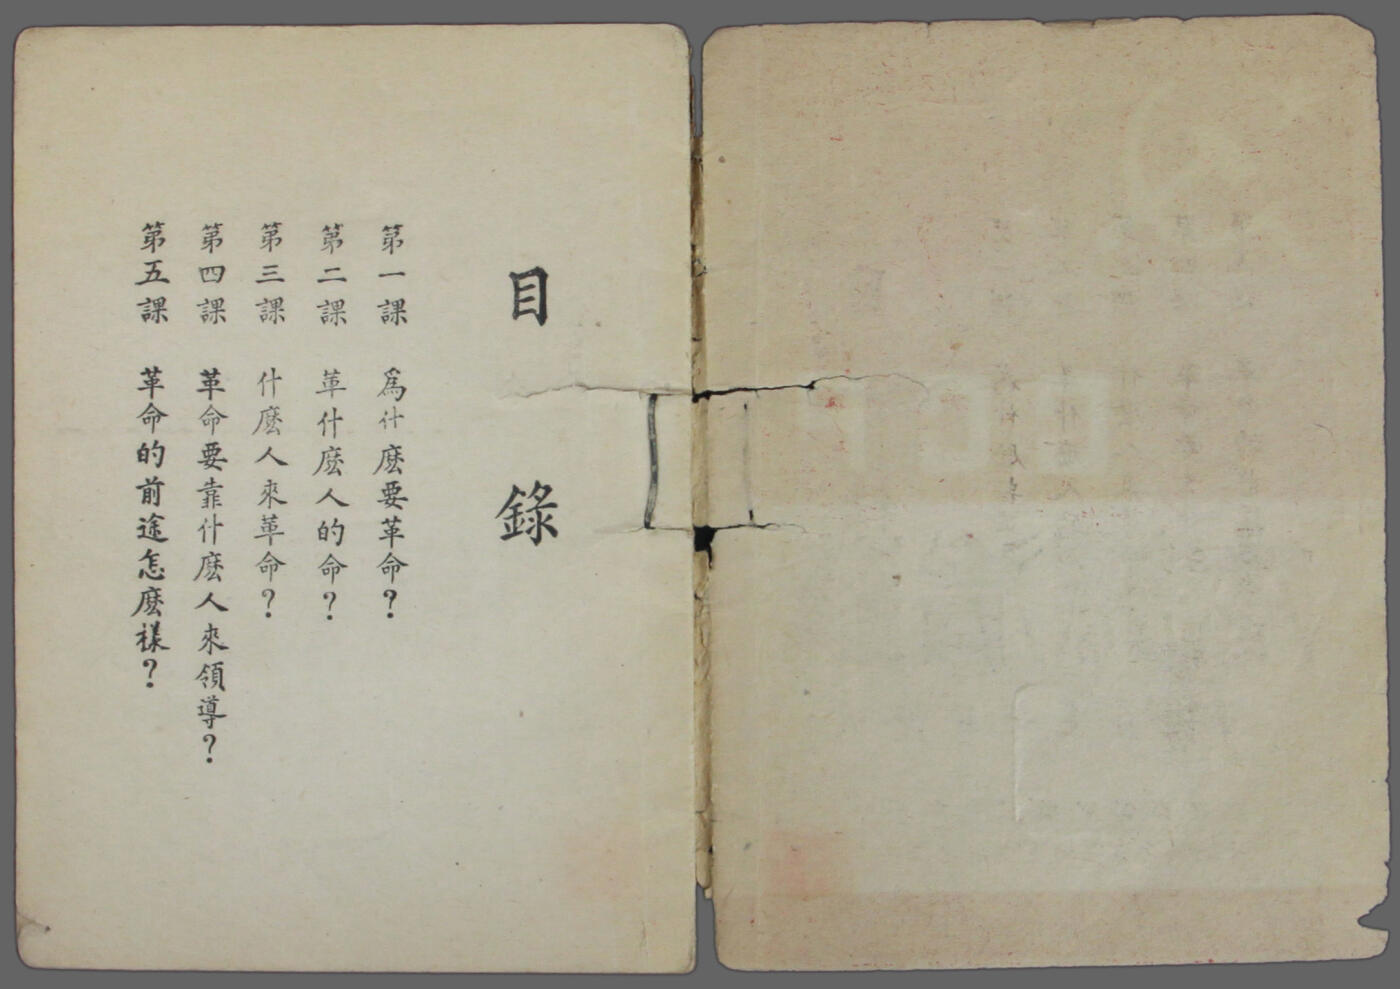 目錄
第一課 爲什麽要革命？
第二課 革什麽人的命？
第三課 什麽人來革命？
第四課 革命要靠什麽人來領導？
第五課 革命的前途怎麽樣？